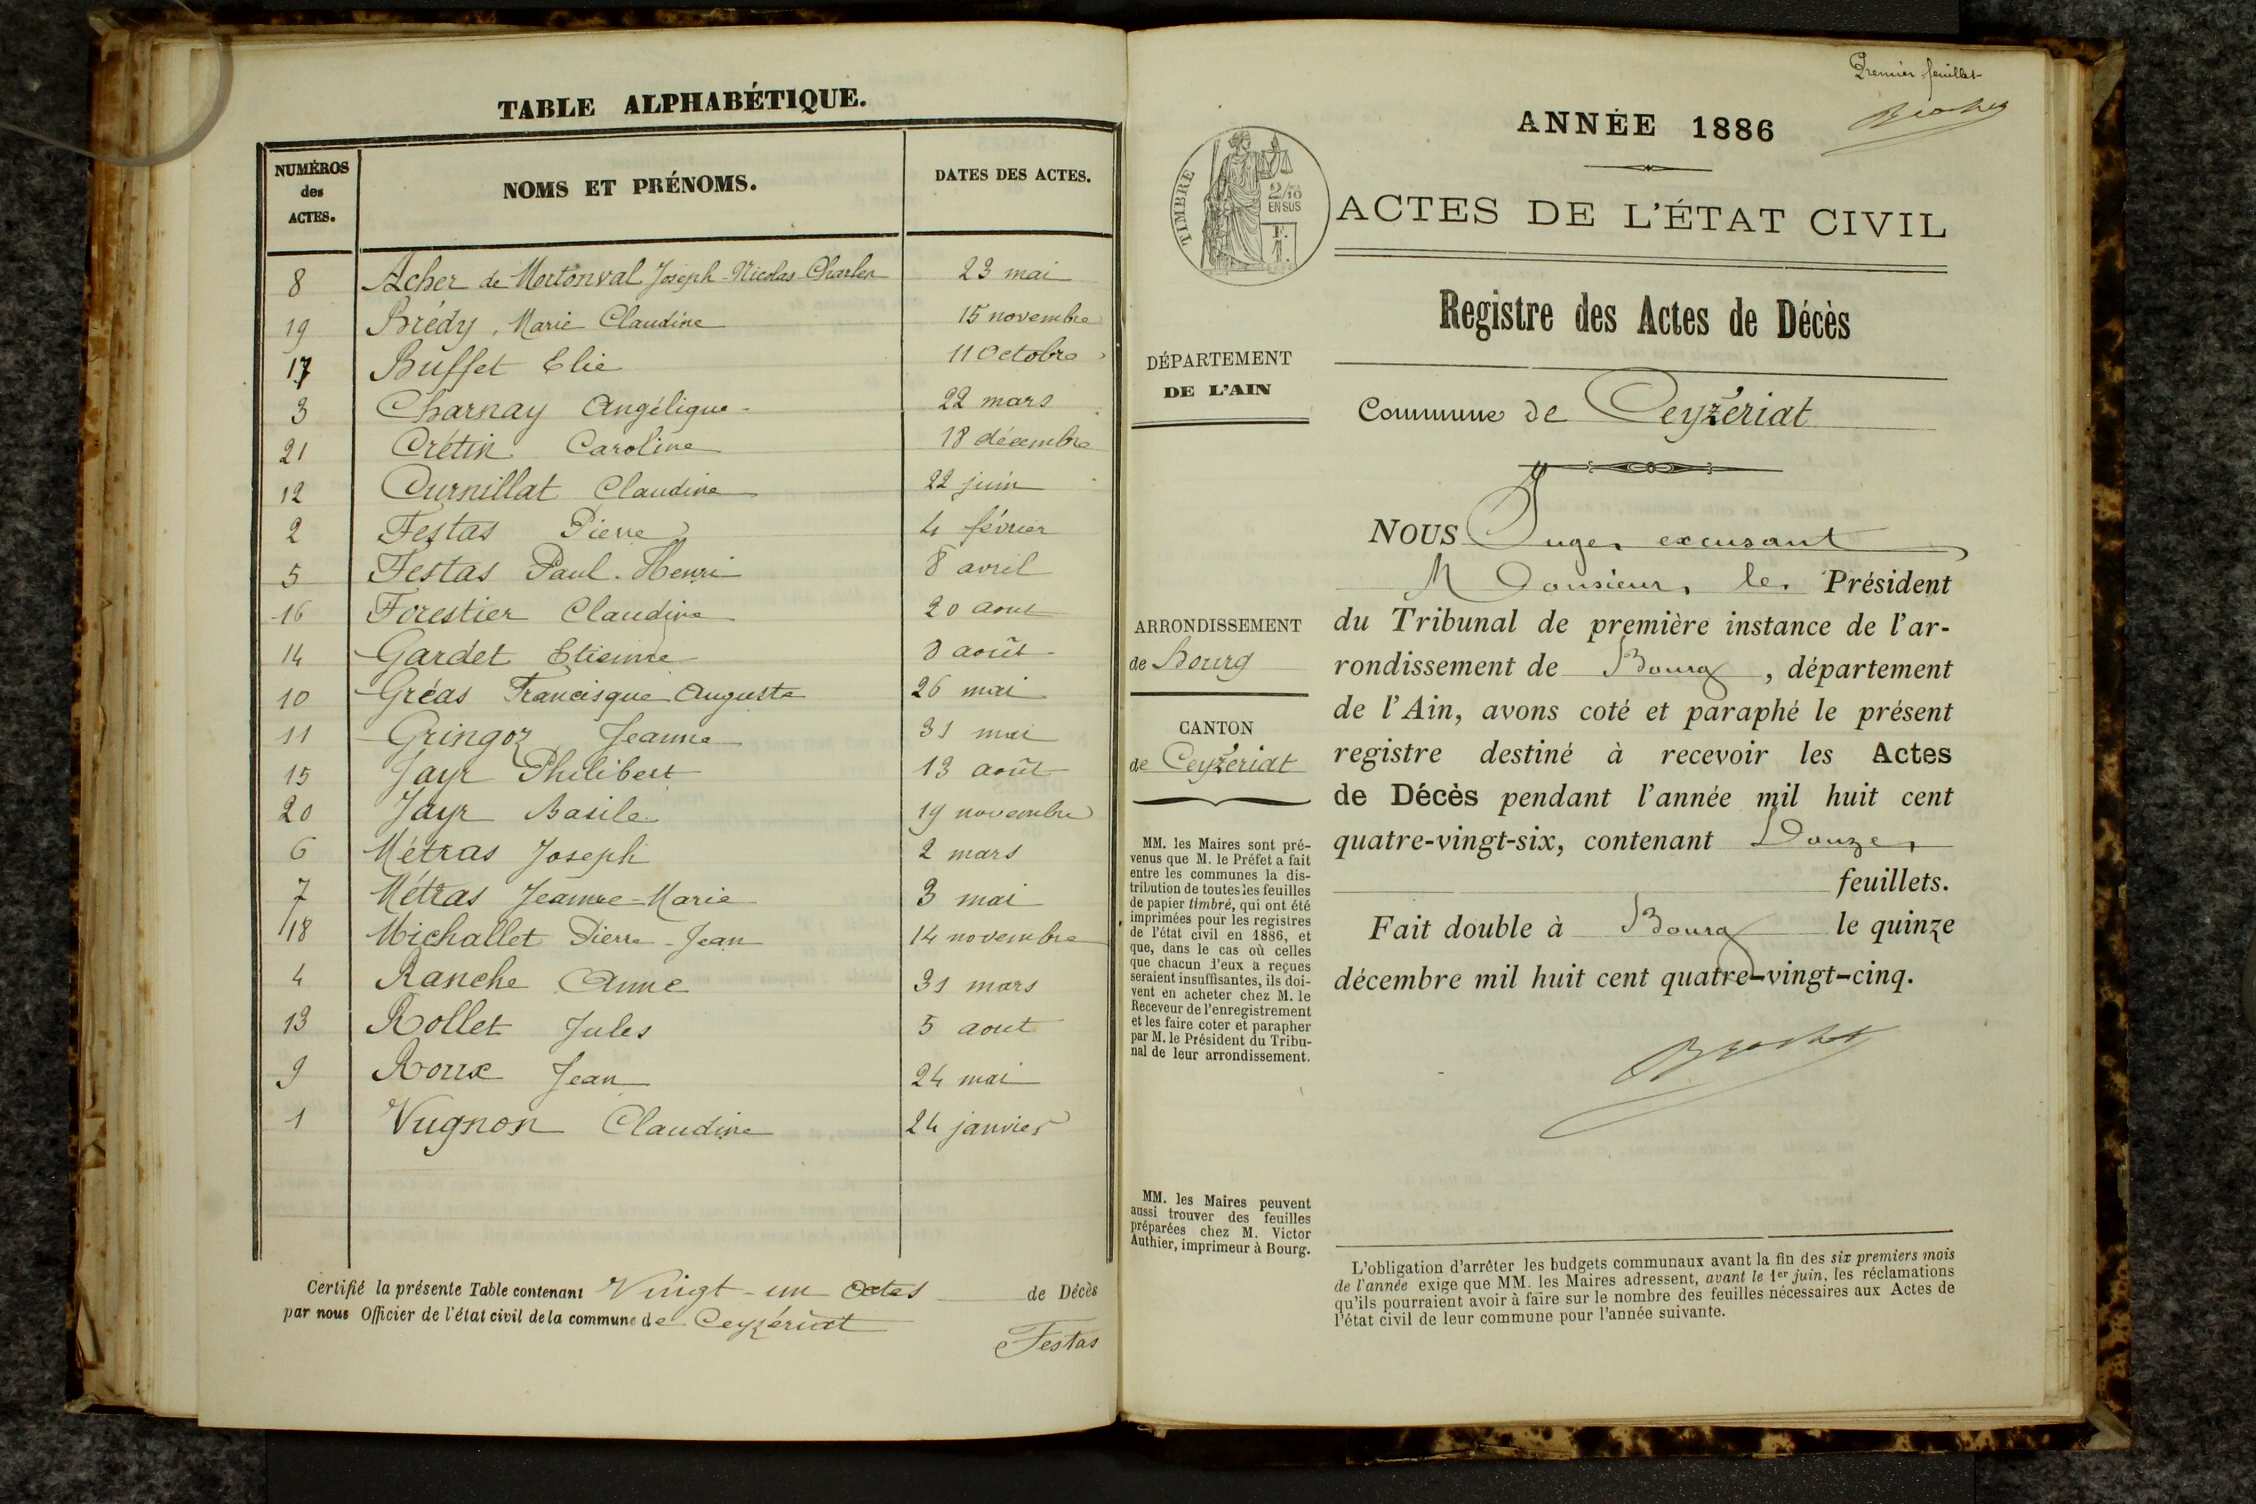 TABLE ALPHABÉTIQUE.
NUMÉROS des ACTES. NOMS ET PRÉNOMS. DATES DES ACTES.
8 Acher de Mortonval Joseph-Nicolas-Charles 23 mai
19 Brédy, Marie Claudine 15 novembre
17 Buffet Elie 11 Octobre
3 Charnay Angélique 22 mars
21 Crétin Caroline 18 décembre
12 Curnillat Claudine 22 juin
2 Festas Pierre 4 février
5 Festas Paul-Henri 8 avril
16 Forestier Claudine 20 aout
14 Gardet Etienne 8 août
10 Gréas Francisque Auguste 26 mai
11 Gringoz Jeanne 31 mai
15 Jayr Philibert 13 août
20 Jayr Basile 19 novembre
6 Métras Joseph 2 mars
7 Métras Jeanne-Marie 3 mai
18 Michallet Pierre-Jean 14 novembre
4 Ranche Anne 31 mars
13 Rollet Jules 5 aout
9 Roux Jean 24 mai
1 Vugnon Claudine 24 janvier
Certifié la présente Table contenant Vingt-un actes de Décès
par nous Officier de l'état civil de la commune de Ceyzériat
Festas
Premier feuillet
ANNÉE 1886
TIMBRE
2/10
EN SUS
ACTES DE L'ÉTAT CIVIL
Registre des Actes de Décès
DÉPARTEMENT
DE L'AIN
Commune de Ceyzériat
ARRONDISSEMENT
de Bourg
CANTON
de Ceyzériat
MM. les Maires sont pré-
venus que M. le Préfet a fait
entre les communes la dis-
tribution de toutes les feuilles
de papier timbré, qui ont été
imprimées pour les registres
de l'état civil en 1886, et
que, dans le cas où celles
que chacun d'eux a reçues
seraient insuffisantes, ils doi-
vent en acheter chez M. le
Receveur de l'enregistrement
et les faire coter et parapher
par M. le Président du Tribu-
nal de leur arrondissement.
MM. les Maires peuvent
aussi trouver des feuilles
préparées chez M. Victor
Authier, imprimeur à Bourg.
NOUS Juge, excusant
Monsieur le Président
du Tribunal de première instance de l'ar-
rondissement de Bourg, département
de l'Ain, avons coté et paraphé le présent
registre destiné à recevoir les Actes
de Décès pendant l'année mil huit cent
quatre-vingt-six, contenant Douze
feuillets.
Fait double à Bourg le quinze
décembre mil huit cent quatre-vingt-cinq.
L'obligation d'arrêter les budgets communaux avant la fin des six premiers mois
de l'année exige que MM. les Maires adressent, avant le 1er juin, les réclamations
qu'ils pourraient avoir à faire sur le nombre des feuilles nécessaires aux Actes de
l'état civil de leur commune pour l'année suivante.